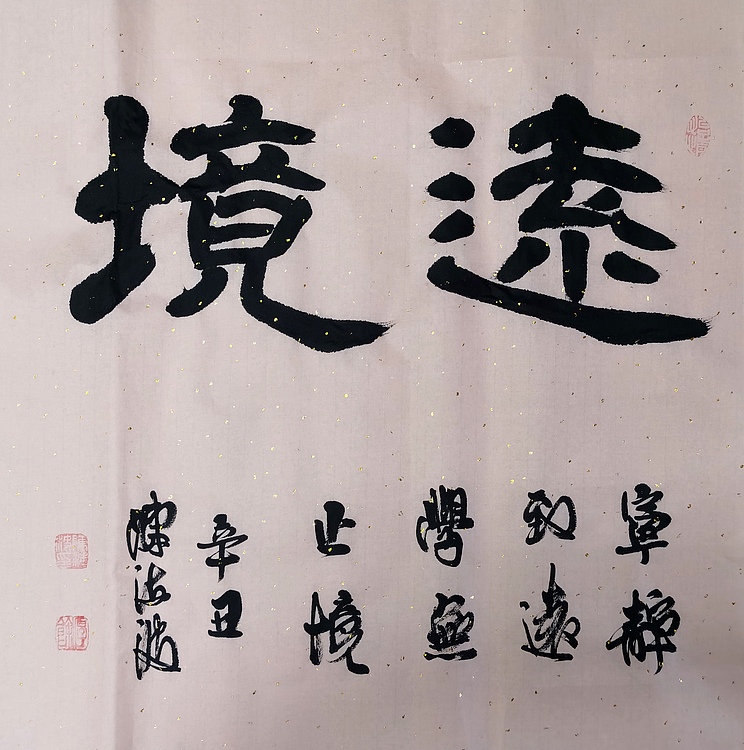 遠境
寧靜
致遠
學無
止境
辛丑